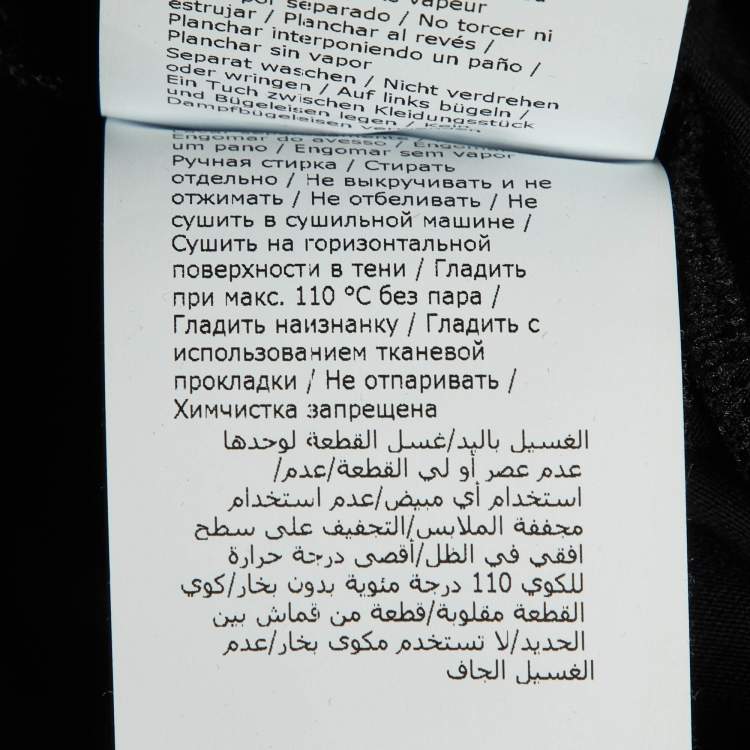 vapeur
por separado / No torcer ni
estrujar / Planchar al revés /
Planchar interponiendo un paño /
Planchar sin vapor
Separat waschen / Nicht verdrehen
oder wringen / Auf links bügeln /
Ein Tuch zwischen Kleidungsstück
und Bügeleisen legen / Kein
Dampfbügeleisen
Engomar do avesso / Engomar
um pano / Engomar sem vapor
Ручная стирка / Стирать
отдельно / Не выкручивать и не
отжимать / Не отбеливать / Не
сушить в сушильной машине /
Сушить на горизонтальной
поверхности в тени / Гладить
при макс. 110 °C без пара /
Гладить наизнанку / Гладить с
использованием тканевой
прокладки / Не отпаривать /
Химчистка запрещена
الغسيل باليد/غسل القطعة لوحدها
عدم عصر أو لي القطعة/عدم/
استخدام أي مبيض/عدم استخدام
مجففة الملابس/التجفيف على سطح
افقي في الظل/أقصى درجة حرارة
للكوي 110 درجة مئوية بدون بخار/كوي
القطعة مقلوبة/قطعة من قماش بين
الحديد/لا تستخدم مكوى بخار/عدم
الغسيل الجاف